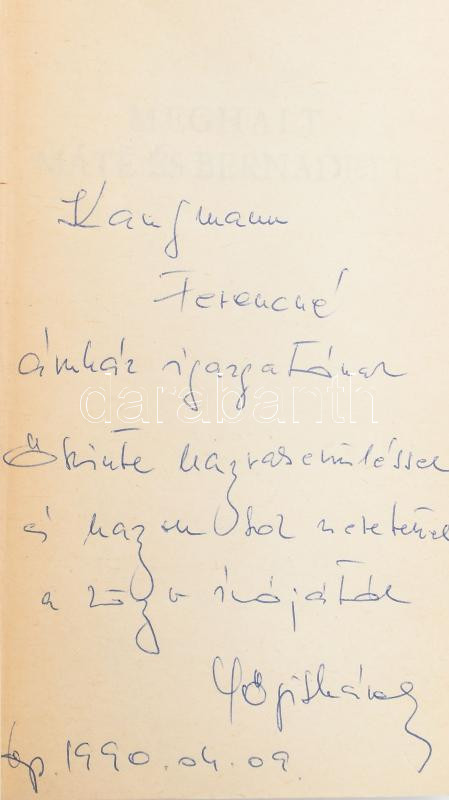 MEGHALT
MÁTÉ ÉS BERNADETT
Kaufmann
Ferencné
áruház igazgatónak
darabanth
Őszinte nagyrabecsüléssel
és nagyon sok szeretettel
a könyv írójától
1990.04.09.